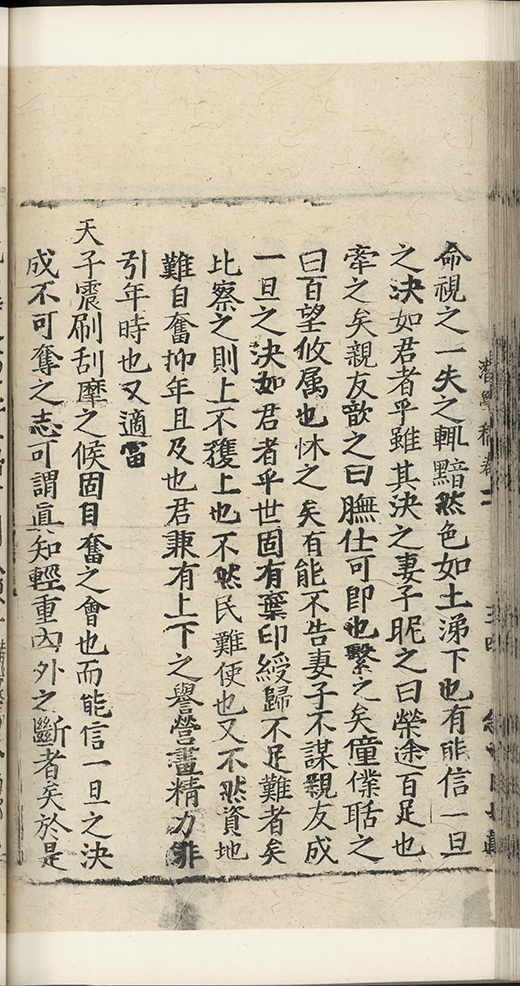 命視之一失之輒黯然色如土涕下也有能信一旦
之決如君者乎雖其決之妻子昵之曰榮途百足也
牽之矣親友歆之曰膴仕可即也繫之矣僮僕聒之
曰百望攸属也怵之矣有能不告妻子不謀親友成
一旦之決如君者乎世固有棄印綬歸不足難者矣
比察之則上不獲上也不然民難使也又不然資地
難自奮抑年且及也君兼有上下之譽營畫精力非
引年時也又適當
天子震刷刮摩之候固自奮之會也而能信一旦之決
成不可奪之志可謂眞知輕重內外之斷者矣於是